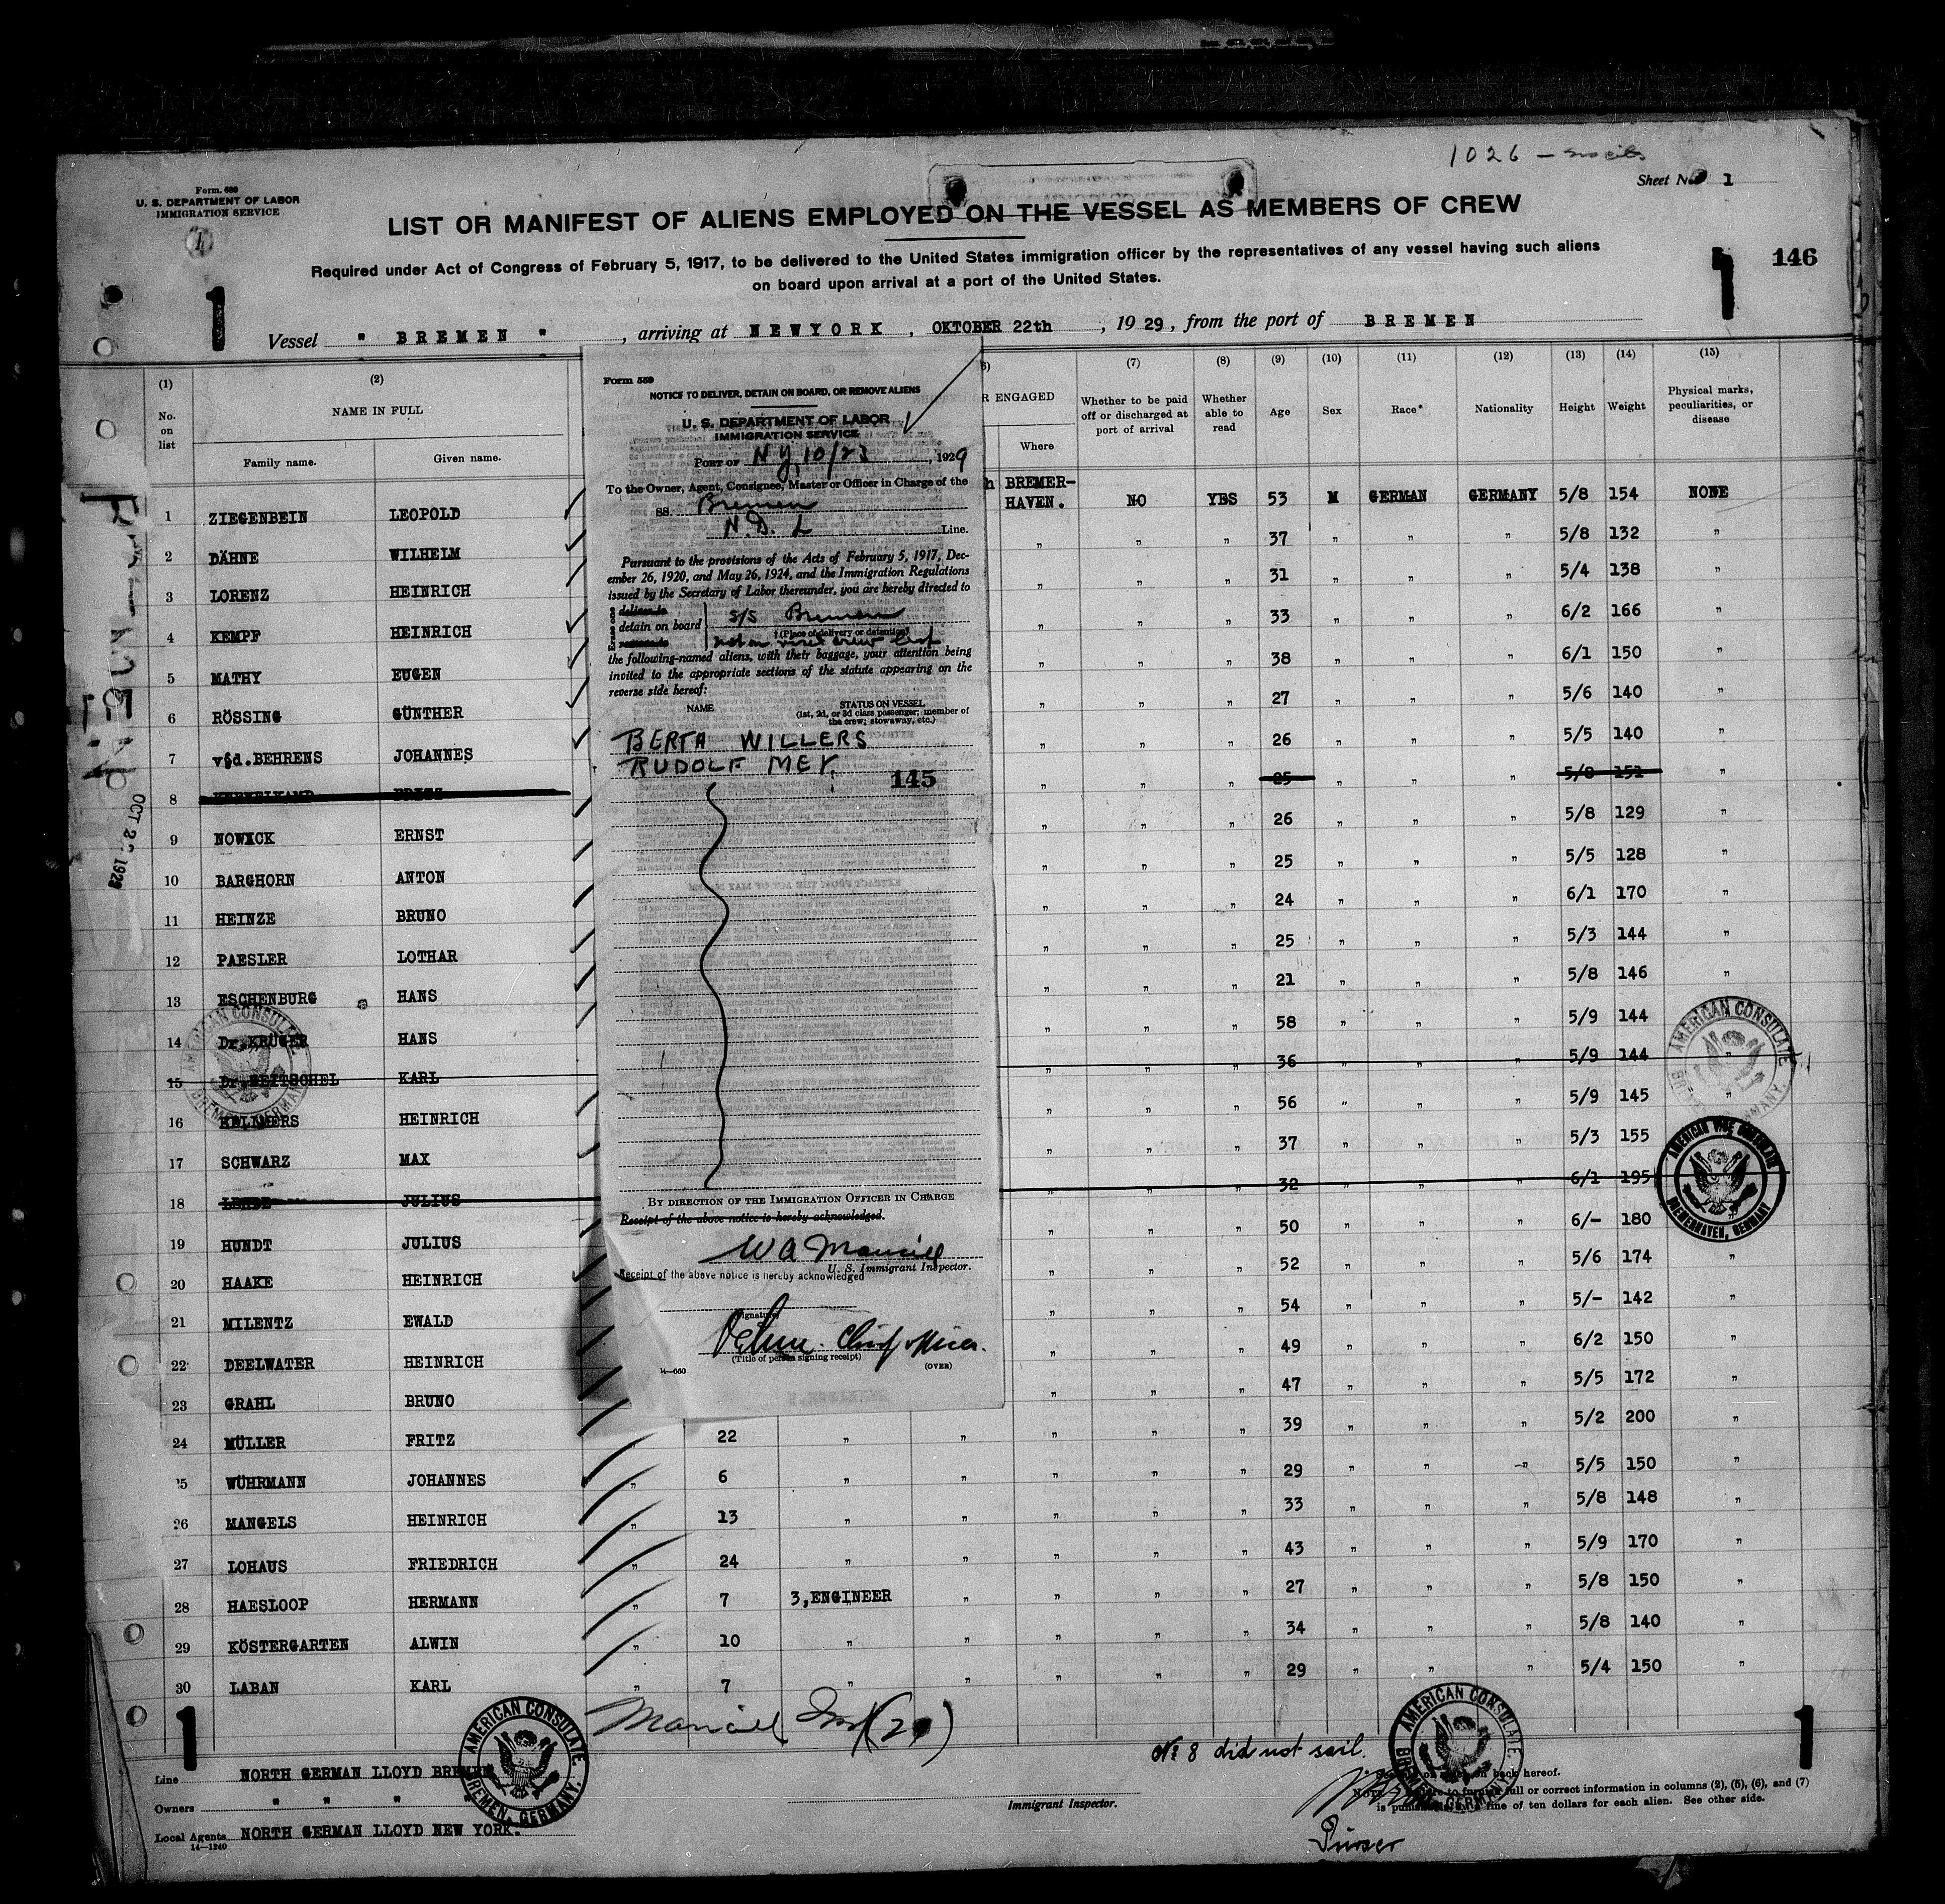 1026 –
Sheet No 1
Form. 680
U. S. DEPARTMENT OF LABOR
IMMIGRATION SERVICE
1
LIST OR MANIFEST OF ALIENS EMPLOYED ON THE VESSEL AS MEMBERS OF CREW
Required under Act of Congress of February 5, 1917, to be delivered to the United States immigration officer by the representatives of any vessel having such aliens
on board upon arrival at a port of the United States.
1 1 146
Vessel " BREMEN " , arriving at NEWYORK , OKTOBER 22th , 1929 , from the port of BREMEN
(1) (2) (7) (8) (9) (10) (11) (12) (13) (14) (15)
No. on list NAME IN FULL R ENGAGED Whether to be paid off or discharged at port of arrival Whether able to read Age Sex Race* Nationality Height Weight Physical marks, peculiarities, or disease
Family name. Given name. Where
1 ZIEGENBEIN LEOPOLD BREMER-HAVEN. NO YES 53 M GERMAN GERMANY 5/8 154 NONE
2 DÄHNE WILHELM " " " 37 " " " 5/8 132 "
3 LORENZ HEINRICH " " " 31 " " " 5/4 138 "
4 KEMPF HEINRICH " " " 33 " " " 6/2 166 "
5 MATHY EUGEN " " " 38 " " " 6/1 150 "
6 RÖSSING GÜNTHER " " " 27 " " " 5/6 140 "
7 v§d.BEHRENS JOHANNES " " " 26 " " " 5/5 140 "
8 " " " " " " 5/8 151 "
9 NOWICK ERNST " " " 26 " " " 5/8 129 "
10 BARGHORN ANTON " " " 25 " " " 5/5 128 "
11 HEINZE BRUNO " " " 24 " " " 6/1 170 "
12 PAESLER LOTHAR " " " 25 " " " 5/3 144 "
13 ESCHENBURG HANS " " " 21 " " " 5/8 146 "
14 Dr.KRÜGER HANS " " " 58 " " " 5/9 144 "
15 KARL " " " 36 " " " 5/9 144 "
16 HEINRICH " " " 56 " " " 5/9 145 "
17 SCHWARZ MAX " " " 37 " " " 5/3 155
18 JULIUS " " " 32 " " " 6/1 195
19 HUNDT JULIUS " " " 50 " " " 6/– 180
20 HAAKE HEINRICH " " " 52 " " " 5/6 174 "
21 MILENTZ EWALD " " " 54 " " " 5/– 142 "
22 DEELWATER HEINRICH " " " 49 " " " 6/2 150 "
23 GRAHL BRUNO " " " 47 " " " 5/5 172 "
24 MÜLLER FRITZ " 22 " " " " " 39 " " " 5/2 200 "
25 WÜHRMANN JOHANNES " 6 " " " " " 29 " " " 5/5 150 "
26 MANGELS HEINRICH " 13 " " " " " 33 " " " 5/8 148 "
27 LOHAUS FRIEDRICH " 24 " " " " " 43 " " " 5/9 170 "
28 HAESLOOP HERMANN " 7 3,ENGINEER " " " " 27 " " " 5/8 150 "
29 KÖSTERGARTEN ALWIN " 10 " " " " " 34 " " " 5/8 140 "
30 LABAN KARL " 7 " " " " " 29 " " " 5/4 150 "
Form 559
NOTICE TO DELIVER, DETAIN ON BOARD, OR REMOVE ALIENS
U. S. DEPARTMENT OF LABOR
IMMIGRATION SERVICE
PORT OF N Y, 10/23 , 1929
To the Owner, Agent, Consignee, Master or Officer in Charge of the
SS. Bremen
N. D. L Line.
Pursuant to the provisions of the Acts of February 5, 1917, Dec-
ember 26, 1920, and May 26, 1924, and the Immigration Regulations
issued by the Secretary of Labor thereunder, you are hereby directed to
Erase one
deliver to
detain on board S/S Bremen
† (Place of delivery or detention)
not on visaed crew list
the following-named aliens, with their baggage, your attention being
invited to the appropriate sections of the statute appearing on the
reverse side hereof:
NAME STATUS ON VESSEL
(1st, 2d, or 3d class passenger; member of
the crew; stowaway, etc.)
BERTA WILLERS
RUDOLF MEY.
145
BY DIRECTION OF THE IMMIGRATION OFFICER IN CHARGE
Receipt of the above notice is hereby acknowledged.
U. S. Immigrant Inspector.
Receipt of the above notice is hereby acknowledged
(Signature)
Chief officer.
(Title of person signing receipt)
14—660 (OVER)
OCT 22 1929
AMERICAN CONSULATE
BREMEN, GERMANY.
AMERICAN CONSULATE
BREMEN, GERMANY.
AMERICAN VICE CONSULATE
BREMERHAVEN, GERMANY
1 1
No 8 did not sail.
Line NORTH GERMAN LLOYD BREMEN
Owners " " " "
Local Agents NORTH GERMAN LLOYD NEW YORK.
14—1240
AMERICAN CONSULATE
BREMEN, GERMANY.
Immigrant Inspector.
AMERICAN CONSULATE.
BREMEN, GERMANY.
back hereof.
full or correct information in columns (2), (5), (6), and (7)
is punishable fine of ten dollars for each alien. See other side.
Purser